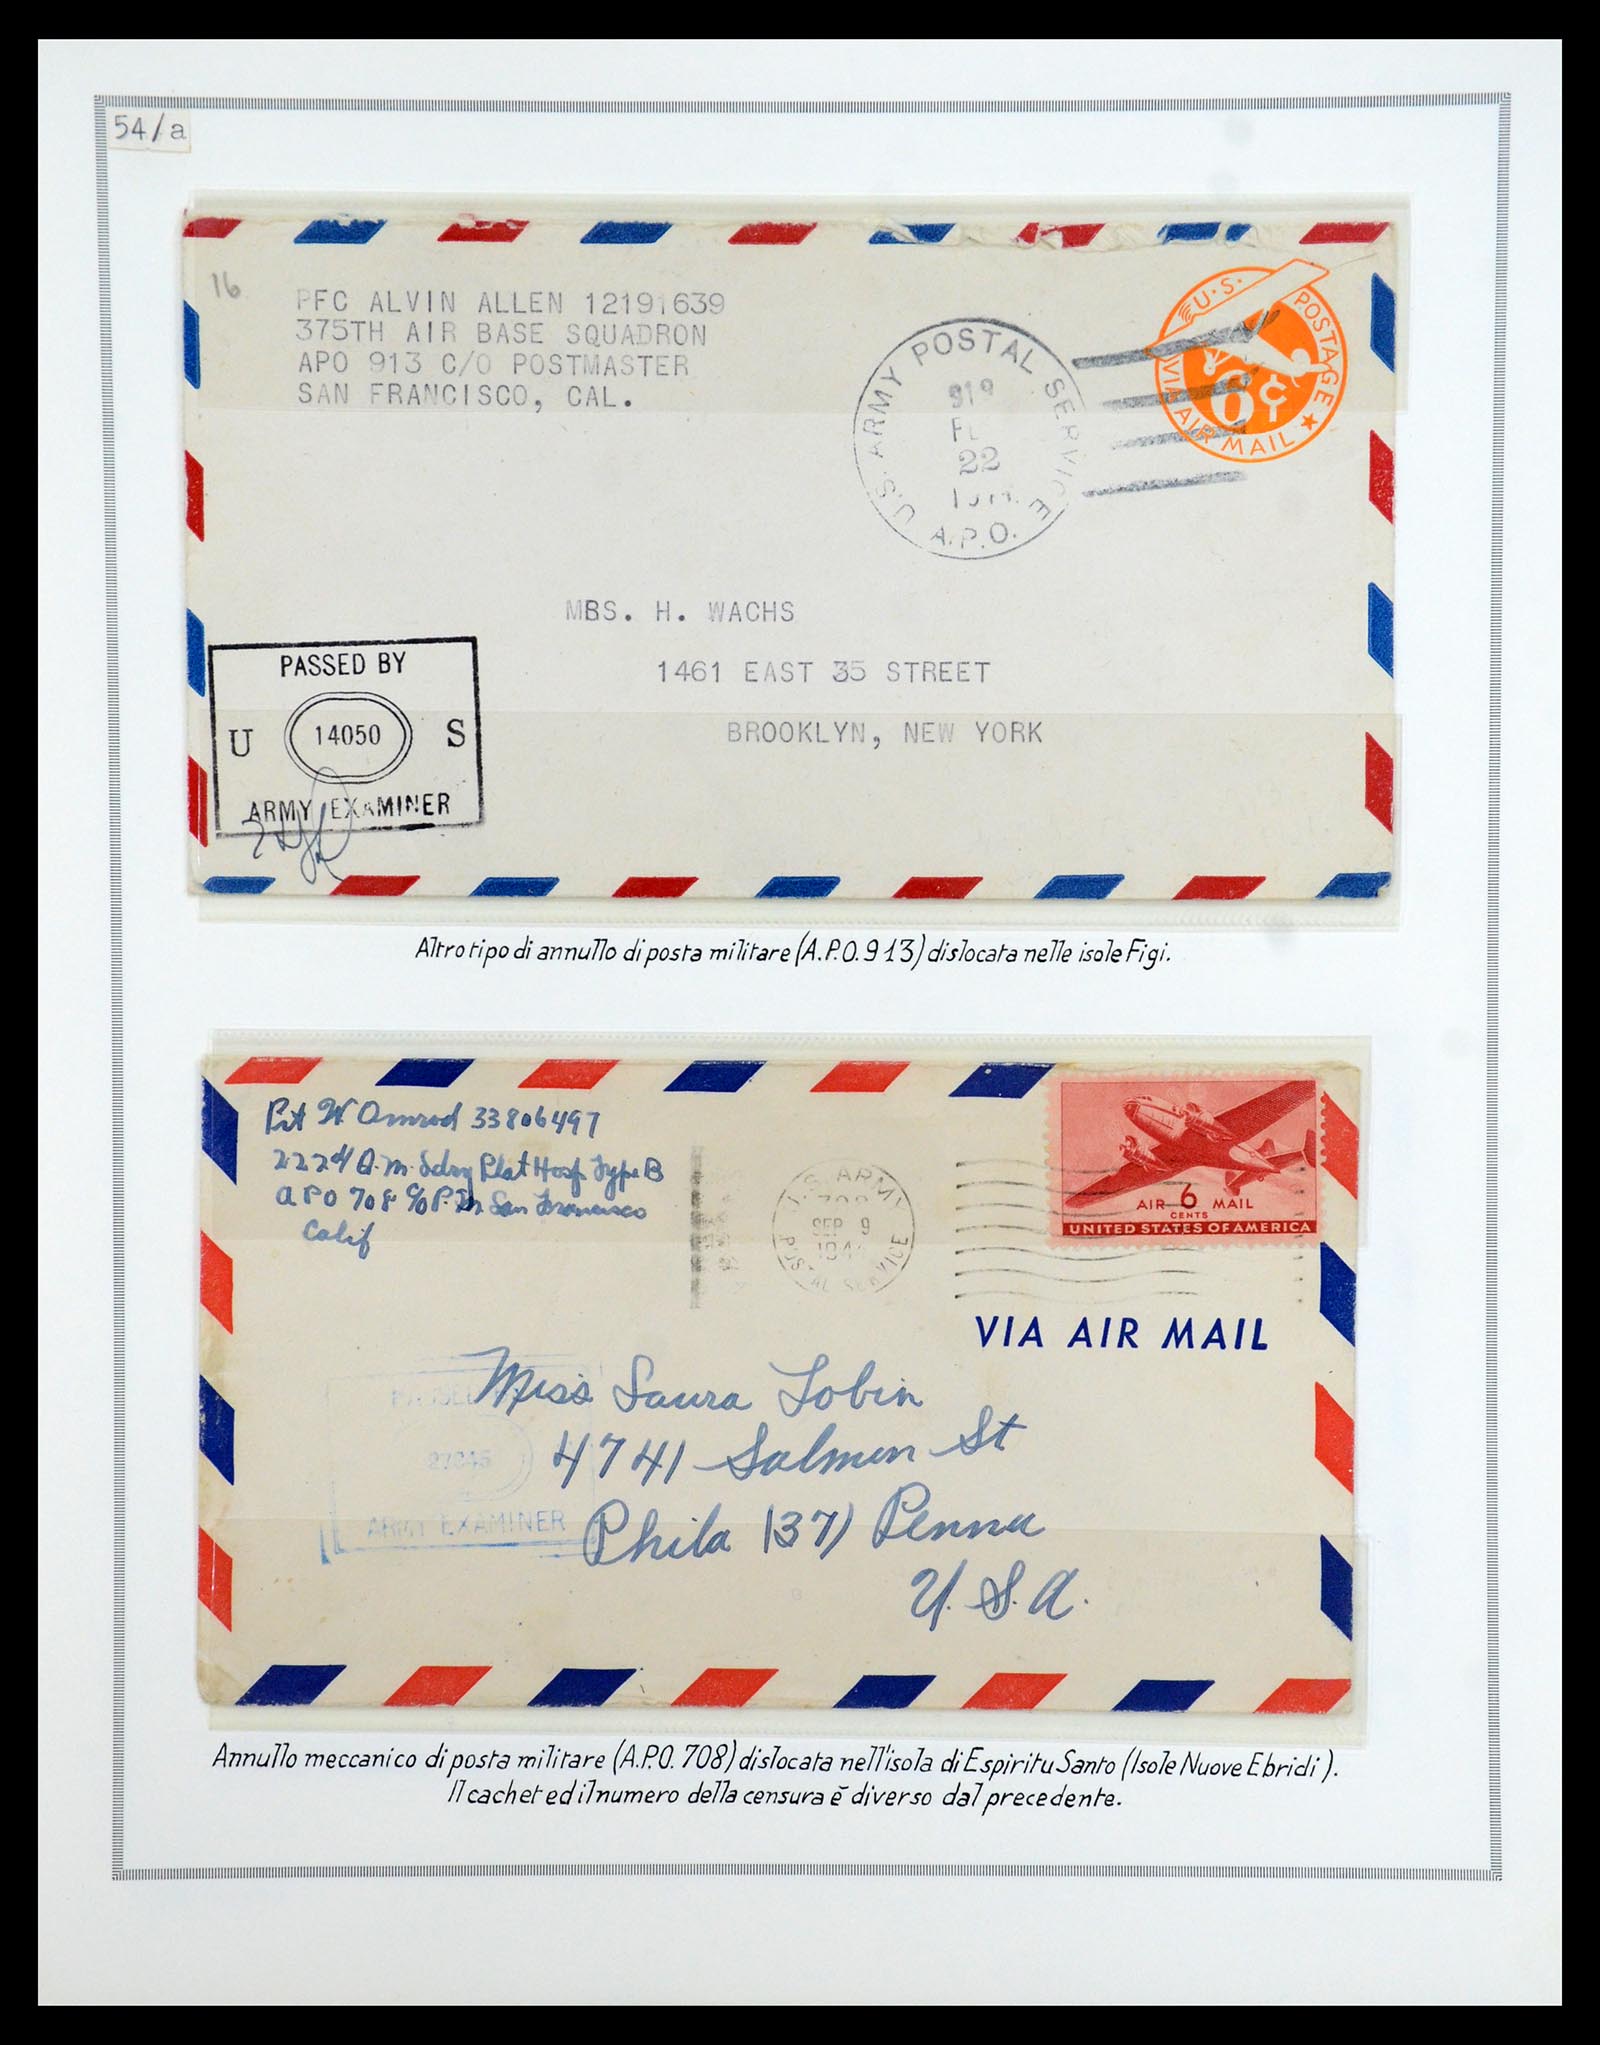 54/a
16
PFC ALVIN ALLEN 12191639
375TH AIR BASE SQUADRON
APO 913 C/O POSTMASTER
SAN FRANCISCO, CAL.
U.S. ARMY POSTAL SERVICE
22
A.P.O.
U.S. POSTAGE
6¢
VIA AIR MAIL
MRS. H. WACHS
1461 EAST 35 STREET
BROOKLYN, NEW YORK
PASSED BY
U 14050 S
ARMY EXAMINER
Altro tipo di annullo di posta militare (A.P.O. 913) dislocata nelle isole Figi.
Pvt W Omrod 33806497
2224 Q.M. Sdry Plat Hosp Type B
APO 708 c/o P.M. San Francisco
Calif
U.S. ARMY
SEP 9
1944
POSTAL SERVICE
AIR 6 MAIL
CENTS
UNITED STATES OF AMERICA
VIA AIR MAIL
Miss Laura Tobin
4741 Salmon St
Phila (37) Penna
U.S.A.
PASSED
ARMY EXAMINER
Annullo meccanico di posta militare (A.P.O. 708) dislocata nell'isola di Espiritu Santo (Isole Nuove Ebridi).
Il cachet ed il numero della censura è diverso dal precedente.